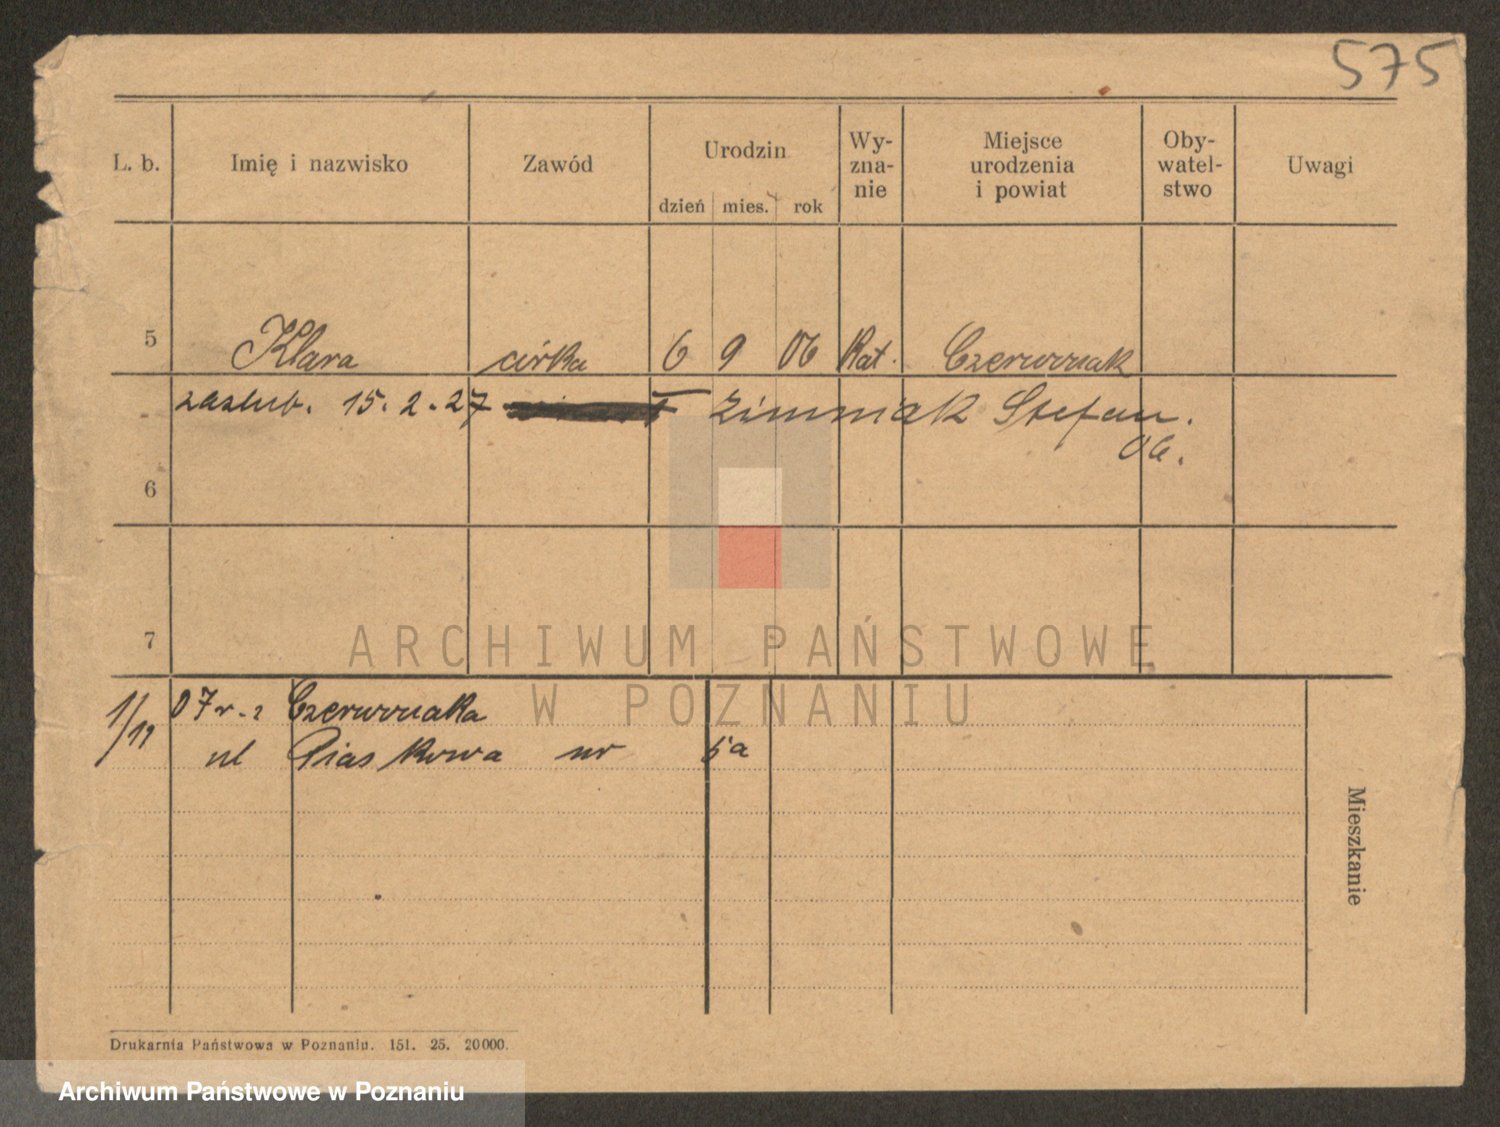 575
L. b. Imię i nazwisko Zawód Urodzin Wy-zna-nie Miejsce urodzenia i powiat Oby-watel-stwo Uwagi
dzień mies. rok
5 Klara córka 6 9 06 Kat. Czerwonak
zaślub. 15.2.27 Zimniak Stefan.
6
7
1/11 07 r. z Czerwonaka
ul Piaskowa nr 5a
Mieszkanie
Drukarnia Państwowa w Poznaniu. 151. 25. 20000.
ARCHIWUM PAŃSTWOWE
W POZNANIU
Archiwum Państwowe w Poznaniu